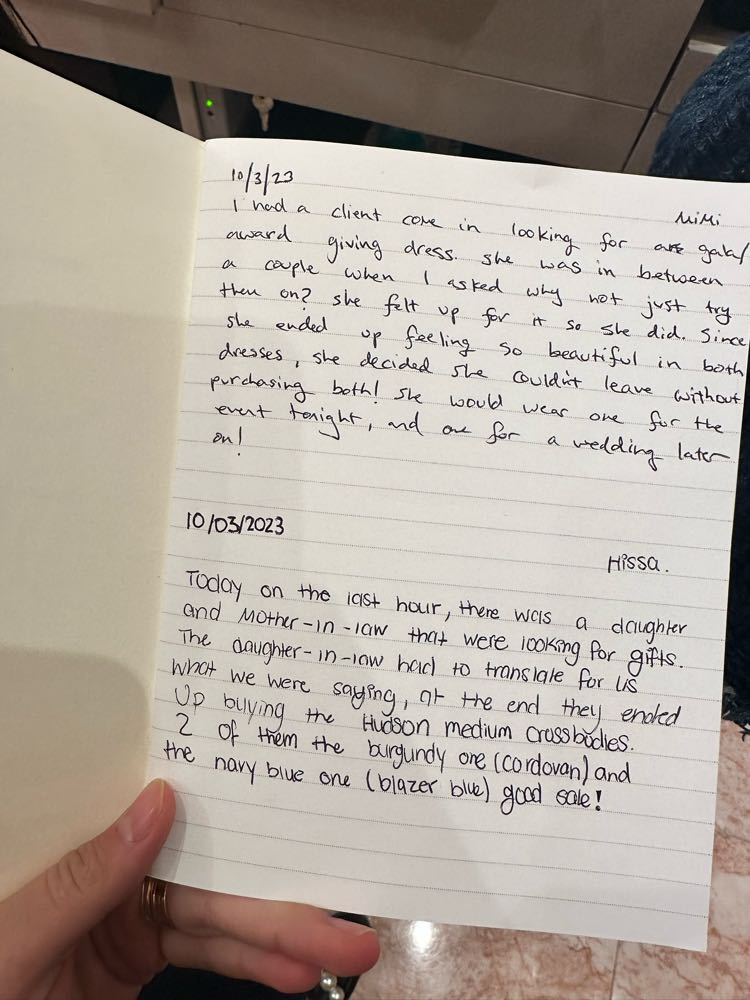 10/3/23
MiMi
I had a client come in looking for a gala/
award giving dress. she was in between
a couple when I asked why not just try
then on? she felt up for it so she did. Since
she ended up feeling so beautiful in both
dresses, she decided she couldn't leave without
purchasing both! she would wear one for the
event tonight, and one for a wedding later
on!
10/03/2023
Hissa.
Today on the last hour, there was a daughter
and Mother-in-law that were looking for gifts.
The daughter-in-law had to translate for us
what we were saying, at the end they ended
up buying the Hudson medium crossbodies.
2 of them the burgundy one (cordovan) and
the navy blue one (blazer blue) good sale!